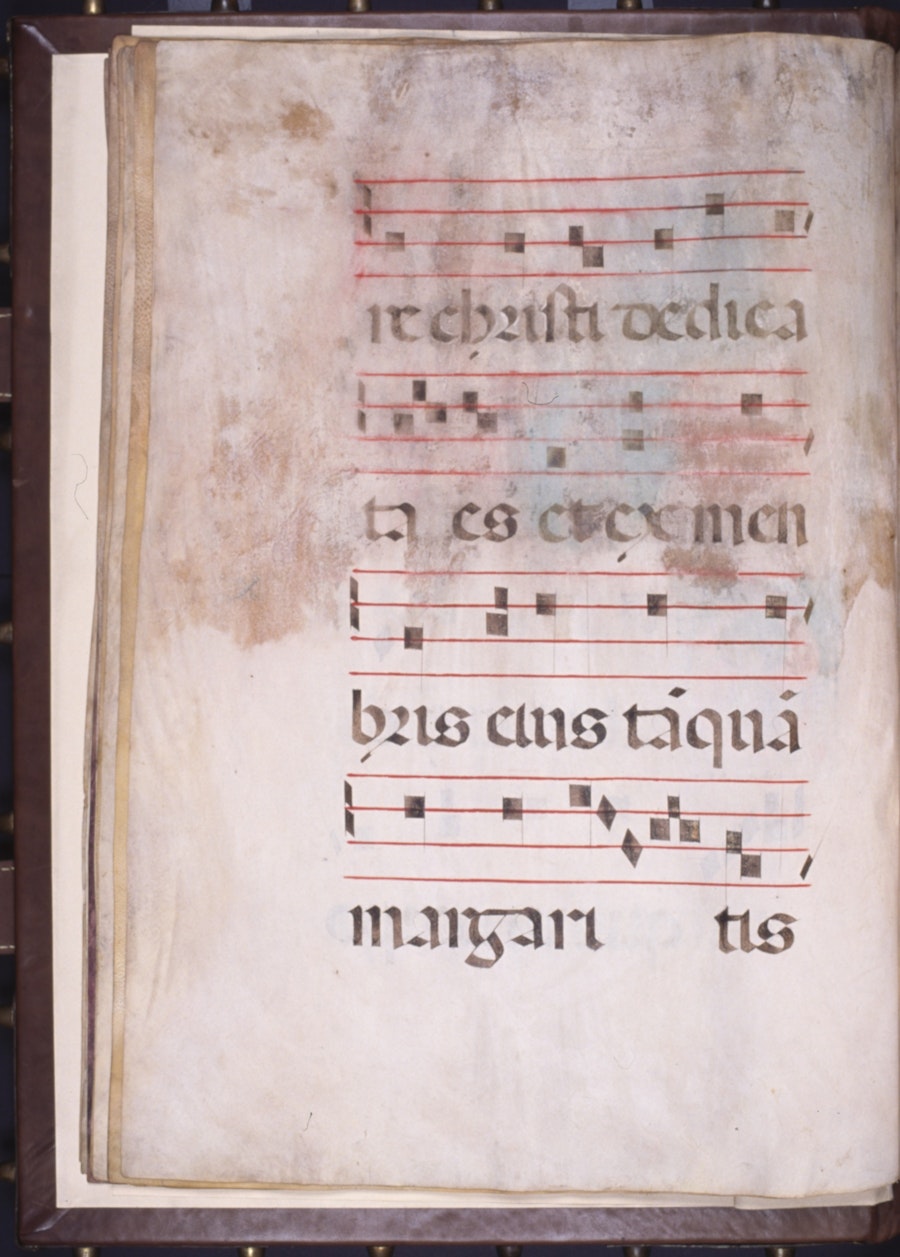 re christi dedica
ta es et ex men
bris eius tāquā
margari tis